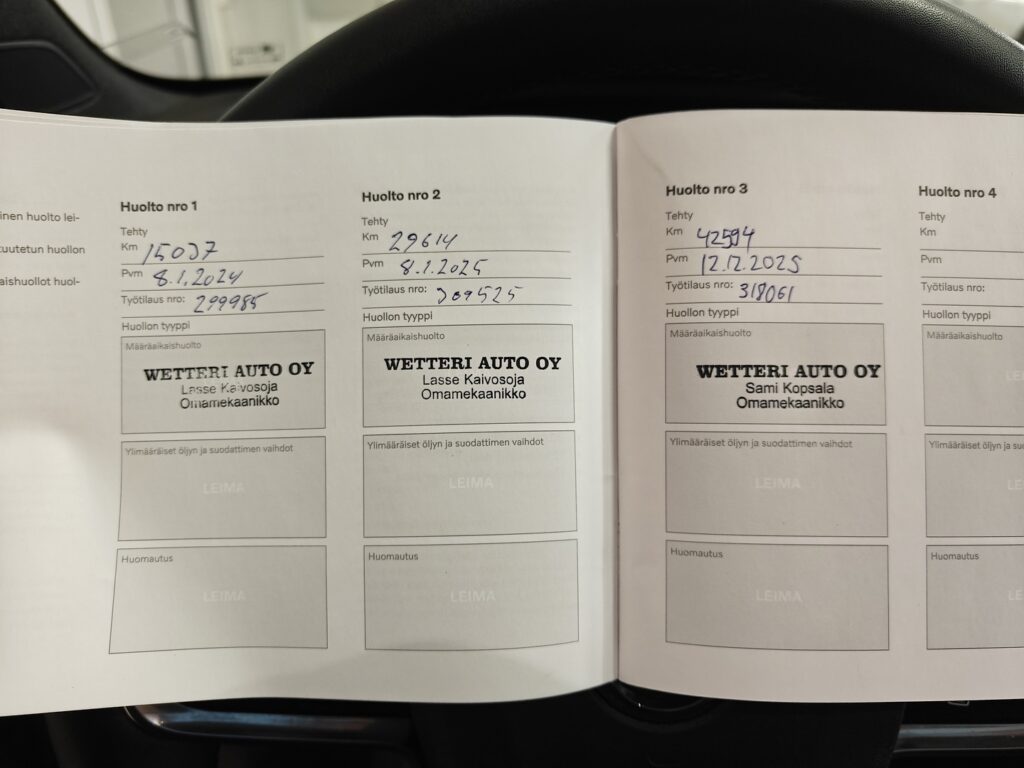 inen huolto lei-
tuutetun huollon
aishuollot huol-
Huolto nro 1
Tehty
Km 15037
Pvm 8.1.2024
Työtilaus nro: 299985
Huollon tyyppi
Määräaikaishuolto
WETTERI AUTO OY
Lasse Kaivosoja
Omamekaanikko
Ylimääräiset öljyn ja suodattimen vaihdot
LEIMA
Huomautus
LEIMA
Huolto nro 2
Tehty
Km 29614
Pvm 8.1.2025
Työtilaus nro: 309525
Huollon tyyppi
Määräaikaishuolto
WETTERI AUTO OY
Lasse Kaivosoja
Omamekaanikko
Ylimääräiset öljyn ja suodattimen vaihdot
LEIMA
Huomautus
LEIMA
Huolto nro 3
Tehty
Km 42594
Pvm 12.12.2025
Työtilaus nro: 318061
Huollon tyyppi
Määräaikaishuolto
WETTERI AUTO OY
Sami Kopsala
Omamekaanikko
Ylimääräiset öljyn ja suodattimen vaihdot
LEIMA
Huomautus
LEIMA
Huolto nro 4
Tehty
Km
Pvm
Työtilaus nro:
Huollon tyyppi
Määräaikaishuolto
LEI
Ylimääräiset öljyn ja suod
LEI
Huomautus
LEI